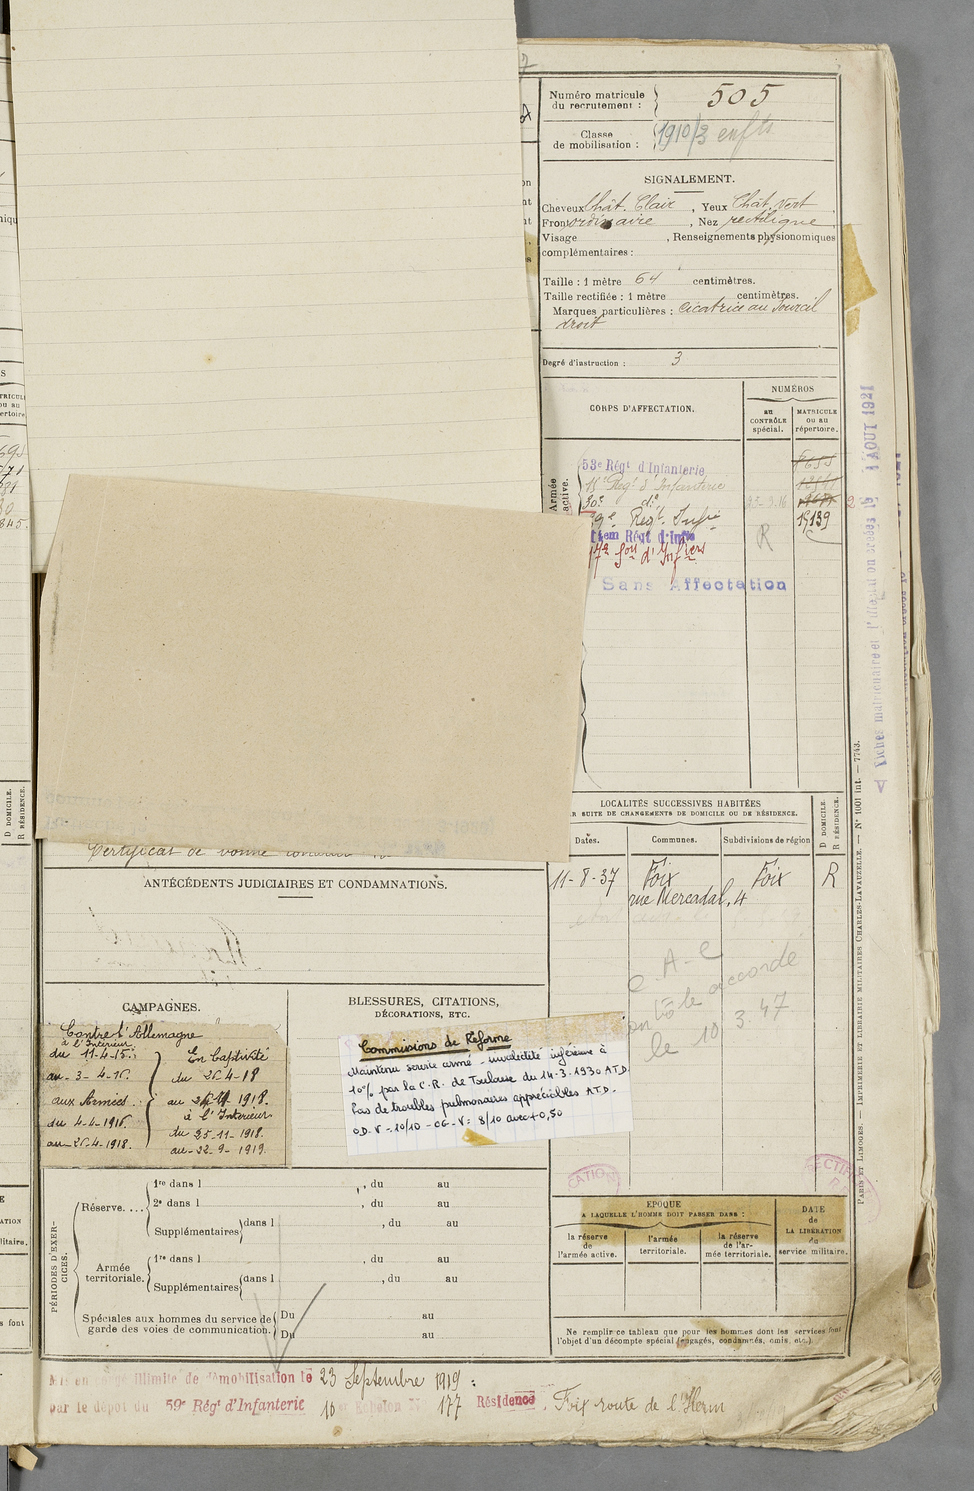 Numéro matricule du recrutement : 505
Classe de mobilisation : 1910/3 enfts
SIGNALEMENT.
Cheveux Chât. Clair, Yeux Chât. Vert,
Front ordinaire, Nez rectiligne,
Visage , Renseignements physionomiques
complémentaires :
Taille : 1 mètre 64 centimètres.
Taille rectifiée : 1 mètre centimètres.
Marques particulières : Cicatrice au Sourcil
droit
Degré d'instruction : 3
CORPS D'AFFECTATION.
NUMÉROS
AU CONTRÔLE spécial.
MATRICULE ou au répertoire.
Armée active.
53e Régt d'Infanterie
Regt d'Infanterie
30e do
9e Regt Infie
Régt d'Infie
R
15139
Sans Affectation
Fiches matriculaire et d'affectation créées le 1 AOUT 1921
LOCALITÉS SUCCESSIVES HABITÉES
R SUITE DE CHANGEMENTS DE DOMICILE OU DE RÉSIDENCE.
D DOMICILE.
R RÉSIDENCE.
Dates.
Communes.
Subdivisions de région
11-8-37 Foix Foix R
rue Mercadal, 4
accordé
le 10 3.47
Certificat de bonne
ANTÉCÉDENTS JUDICIAIRES ET CONDAMNATIONS.
CAMPAGNES.
Contre l'Allemagne
à l'Intérieur
du 11-4-15.
au - 3-4-16.
aux Armées
du 4-4-1916.
au 4-1918.
En Captivité
du 4-18
au 1918.
à l'Intérieur
du 25-11-1918.
au - 22-9-1919.
BLESSURES, CITATIONS,
DÉCORATIONS, ETC.
Commissions de Réforme
Maintenu service armé - invalidité inférieure à
10% par la C.R. de Toulouse du 14-3-1930 A.T.D.
Pas de troubles pulmonaires appréciables A.T.D.
O.D. V = 10/10 - OG - V = 8/10 avec + 0,50
PÉRIODES D'EXERCICES.
Réserve....
1re dans l , du au
2e dans l , du au
Supplémentaires dans l , du au
Armée territoriale.
1re dans l , du au
Supplémentaires dans l , du au
Spéciales aux hommes du service de
garde des voies de communication.
Du au
Du au
EPOQUE
A LAQUELLE L'HOMME DOIT PASSER DANS :
la réserve de l'armée active.
l'armée territoriale.
la réserve de l'armée territoriale.
DATE
de
LA LIBÉRATION
du
service militaire.
Ne remplir ce tableau que pour les hommes dont les services font
l'objet d'un décompte spécial (engagés, condamnés, omis, etc.).
Mis en congé illimité de démobilisation le 23 Septembre 1919 :
par le dépôt du 59e Régt d'Infanterie 10 Echelon No 177 Résidence, Foix route de l'Herm
PARIS ET LIMOGES. — IMPRIMERIE ET LIBRAIRIE MILITAIRES CHARLES-LAVAUZELLE. — No 1001 int. — 7743.